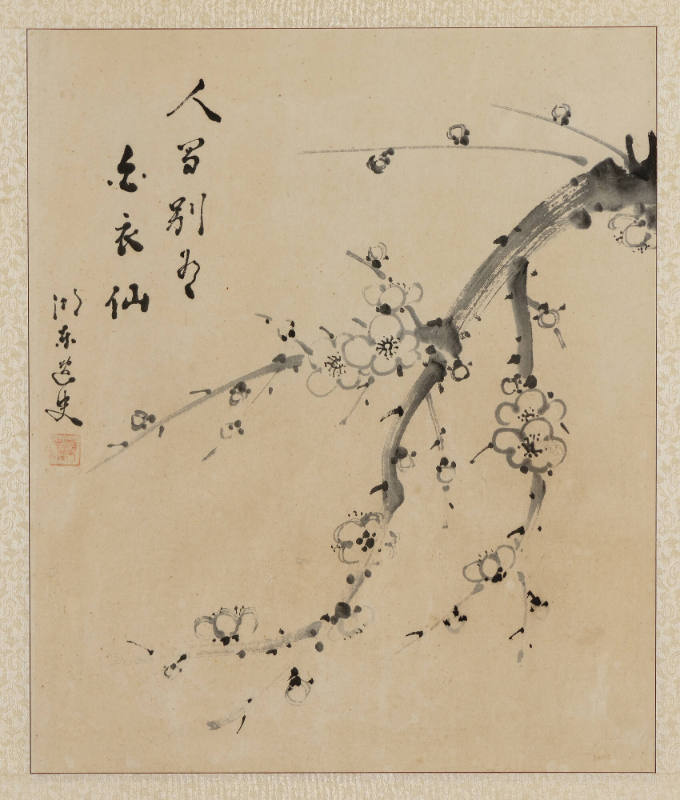 人間別有
白衣仙
湖東逸史